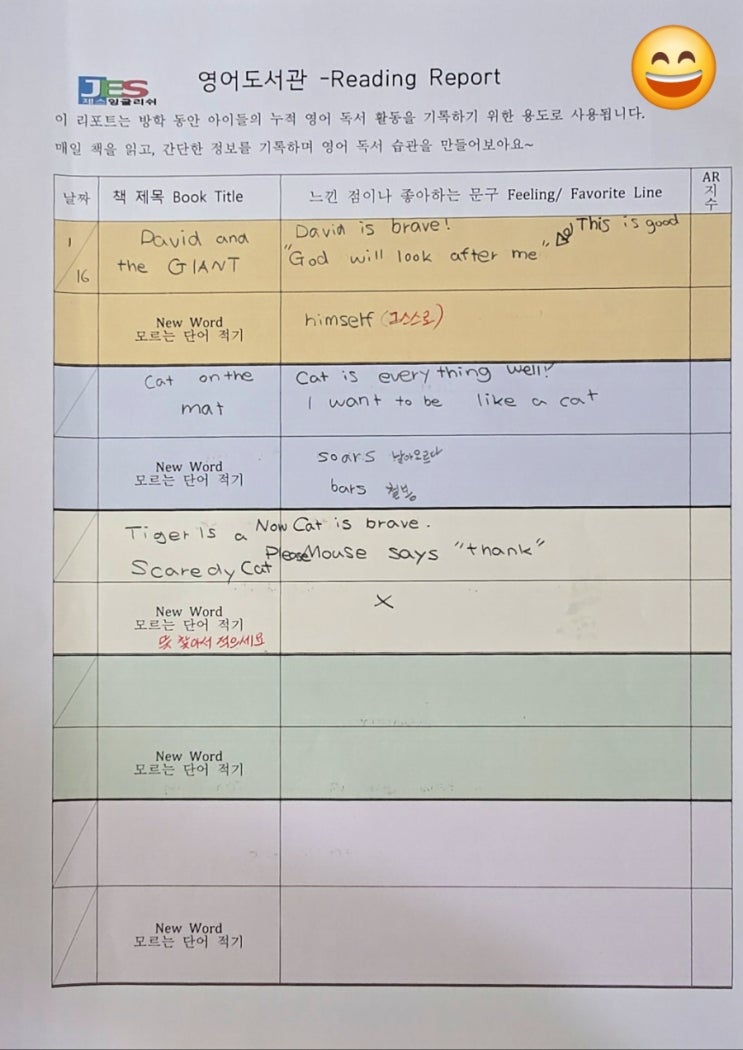 JES
제스잉글리쉬
영어도서관 -Reading Report
이 리포트는 방학 동안 아이들의 누적 영어 독서 활동을 기록하기 위한 용도로 사용됩니다.
매일 책을 읽고, 간단한 정보를 기록하며 영어 독서 습관을 만들어보아요~
날짜 책 제목 Book Title 느낀 점이나 좋아하는 문구 Feeling/ Favorite Line AR 지수
1/16
David and
the GIANT
David is brave!
"God will look after me" This is good
New Word
모르는 단어 적기
himself (그스스로)
Cat on the
mat
Cat is everything well!
I want to be like a cat
New Word
모르는 단어 적기
soars 날아오르다
bars 철봉
Tiger Is a
Scaredy Cat
Now Cat is brave.
Please Mouse says "thank"
New Word
모르는 단어 적기
뜻 찾아서 적으세요
X
New Word
모르는 단어 적기
New Word
모르는 단어 적기